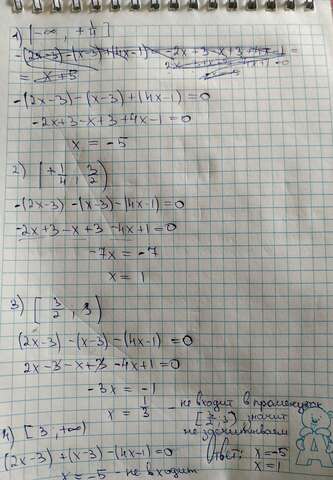 1) [-∞, +1/4]
= x+5
-(2x-3)-(x-3)+(4x-1)=0
-2x+3-x+3+4x-1=0
x = -5
2) [+1/4, 3/2)
-(2x-3)-(x-3)-(4x-1)=0
-2x+3-x+3-4x+1=0
-7x = -7
x = 1
3) [3/2, 3)
(2x-3)-(x-3)-(4x-1)=0
2x-3-x+3-4x+1=0
-3x = -1
x = 1/3 - не входит в промежуток
[3/2, 3) значит
не засчитываем
4) [3, +∞)
(2x-3)+(x-3)-(4x-1)=0
x = -5 - не входит
Ответ: x=-5
x=1